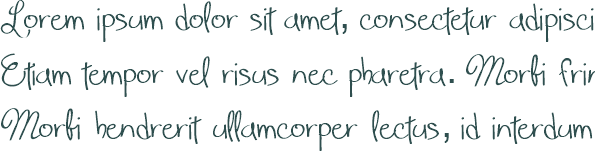 Lorem ipsum dolor sit amet, consectetur adipisci
Etiam tempor vel risus nec pharetra. Morbi frin
Morbi hendrerit ullamcorper lectus, id interdum